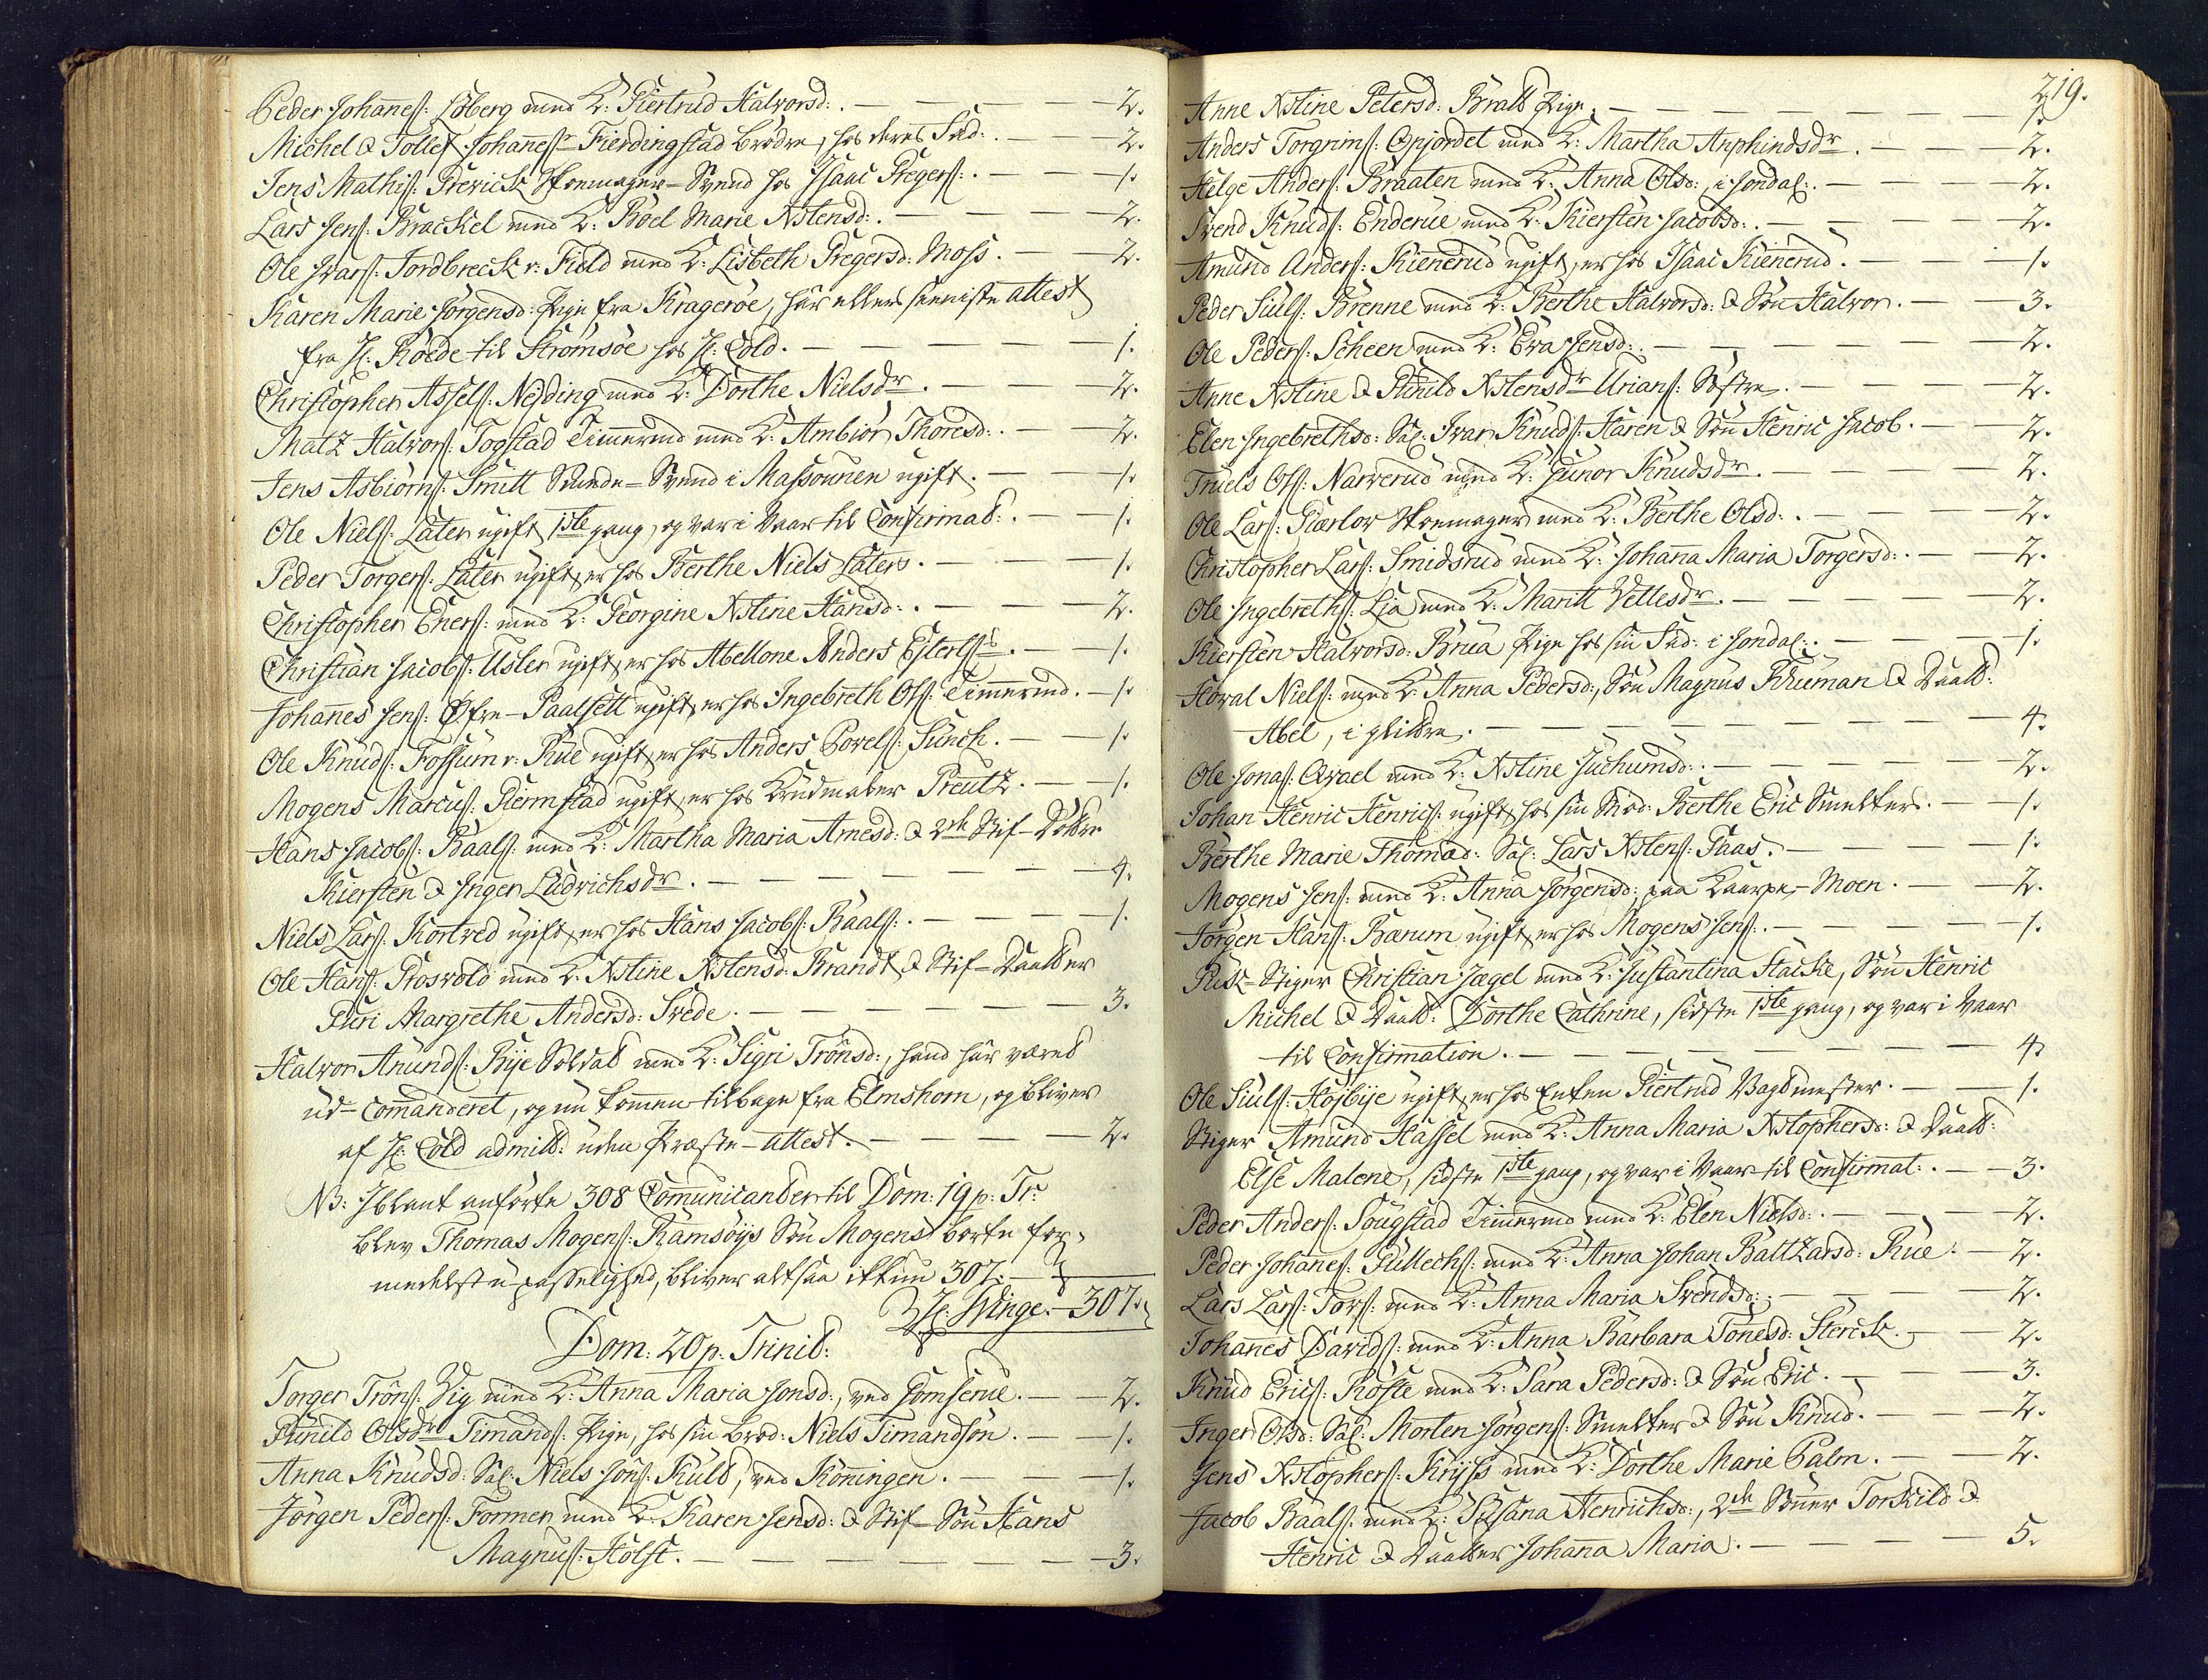 Peder Johaneſ: Löberg med K: Giertrud Halvorsd: . — — — 2.
Michel & Tollef Johaneſ: Fierdingstad brödre, hos deres Fad: . — 2.
Jens Mathiſ: Skoemager-Svend hos Isaac Gregerſ: . — — 1.
Lars Jenſ: Brackel med K: Boel Marie Xstensd: . — — — 2.
Ole Ivarſ: Jordbreck v: Field med K: Lisbeth Gregersd: Moss. — — 2.
Karen Marie Jörgensd: Pige fra Krageröe, har ellers seeniste attest
fra H: Röede til Strömsöe hos H: Cold. — — — 1.
Christopher Asselſ: Nejding med K: Dorthe Nielsdr. — — 2.
Matz Halvorſ: Togstad Timermd med K: Ambiör Thoresd: . — — 2.
Jens Asbiörnſ: Smitt Svend i Massovnen ugift. — — 1.
Ole Nielſ: Later ugift, 1ste gang, og var i Vaar til Confirmat: . — 1.
Peder Torgerſ: Later ugift, er hos Berthe Niels Laters. — — 1.
Christopher Enerſ: med K: Georgine Xstine Hansd: . — — 2.
Christian Jacobſ: Usler ugift, er hos Abellone Anders . — 1.
Johanes Jenſ: Öfre-Paalsett ugift, er hos Ingebreth Olſ: Timermd. — 1.
Ole Knudſ: Fossum v: Rue ugift, er hos Anders Povelſ: Sunch. — 1.
Mogens Marcuſ: Giermstad ugift, er hos Krudmaler Preutz. — — 1.
Hans Jacobſ: Baalſ: med K: Martha Maria Arnesd: & 2de Stif-Döttre
Kiersten & Inger Ludvichsdr. — — — 4.
Niels Larſ: Kortved ugift, er hos Hans Jacobſ: Baalſ: . — — 1.
Ole Hanſ: Groswold med K: Xstine Xstensd: Brandt, & Stif-Daatter
Guri Margrethe Andersd: Svede. — — — 3.
Halvor Amundſ: Bye Soldat med K: Sigri Trönsd:, hand har været
ud-comanderet, og nu kommen tilbage fra Elmshorn, og bliver
af H: Cold admitt: uden Præste-attest. — — — 2.
NB: Iblant anförte 308 Comunicanter til Dom: 19 p: Tr:
blev Thomas Mogenſ: Ramsöys Sön Mogens borte for-
medelst u-passelighed, bliver altsaa ikkun 307. —
H: Winge. — 307.
Dom: 20 p: Trinit:
Torger Trönſ: Vig med K: Anna Maria Jonsd:, ved Gomserue. — — 2.
Gunild Olsdr Timandſ: Pige, hos sin brod: Niels Timandsön. — — 1.
Anna Knudsd: Sal: Niels Jonſ: Kuld, ved Koningen. — — 1.
Jörgen Pederſ: Former med K: Karen Jensd: & Stif-Sön Hans
Magnuſ: Holst. — — — 3.
219.
Anne Xstine Petersd: Bratt Pige. — — — 1.
Anders Torgrimſ: Opjordet med K: Martha Anphindsdr. — — 2.
Helge Anderſ: Braaten med K: Anna Olsd:, i Jondal: . — — 2.
Svend Knudſ: Enderue med K: Kiersten Jacobsd: . — — 2.
Amund Anderſ: Kienerud ugift, er hos Isaac Kienerud. — — 1.
Peder Siulſ: Brenne med K: Berthe Halvorsd: & Sön Halvor. — — 3.
Ole Pederſ: Scheen med K: Eva Jensd: . — — — 2.
Anne Xstine & Gunild Xstensdr Urianſ: Söstre. — — — 2.
Elen Ingebrethsd: Sal: Ivar Knudſ: Haren & Sön Henric Jacob. — 2.
Truels Olſ: Narverud med K: Gunor Knudsdr. — — — 2.
Ole Larſ: Giarlow Skoemager med K: Berthe Olsd: . — — — 2.
Christopher Larſ: Smidsrud med K: Johana Maria Torgersd: . — — 2.
Ole Ingebrethſ: Lia med K: Maritt Vettesdr. — — — 2.
Kiersten Halvorsd: Brua Pige hos sin Fad: i Jondal: . — — 1.
Howal Nielſ: med K: Anna Pedersd:, Sön Magnus & Daatt:
Abel, i . — — — 4.
Ole Jonaſ: Qvael med K: Xstine Juchumsd: . — — — 2.
Johan Henric Henricſ: ugift, hos sin Mod: Berthe Eric Smelters. — 1.
Berthe Marie Thomasd: Sal: Lars Xstenſ: Paas. — — — 1.
Mogens Jenſ: med K: Anna Jörgensd:, paa -Moen. — — 2.
Jörgen Hanſ: Barum ugift, er hos Mogens Jenſ: . — — — 1.
Puk-Stiger Christian Jægel med K: Justantina Hacke, Sön Henric
Michel & Daatt: Dorthe Cathrine, sidste 1ste gang, og var i Vaar
til Confirmation. — — — 4.
Ole Siulſ: Höjbye ugift, er hos Enken Giertrud Vagtmester. — — 1.
Stiger Amund Hassel med K: Anna Maria Xstophersd: & Daatt:
Else Malene, sidste 1ste gang, og var i Vaar til Confirmat: . — 3.
Peder Anderſ: Sougstad Timermd med K: Elen Nielsd: . — — 2.
Peder Johaneſ: Gullechſ: med K: Anna Johan Baltzarsd: Rue. — 2.
Lars Larſ: Torſ: med K: Anna Maria Svendsd: . — — — 2.
Johanes Davidſ: med K: Anna Barbara Tönesd: Sterck. — — 2.
Knud Ericſ: Koste med K: Sara Pedersd: & Sön Eric. — — 3.
Inger Olsd: Sal: Morten Jörgenſ: Smelter & Sön Knud. — — 2.
Jens Xstopherſ: Kryss med K: Dorthe Marie Palm. — — 2.
Jacob Baalſ: med K: Susana Henrichsd:, 2de Söner Torkild &
Henric & Daatter Johana Maria. — — — 5.